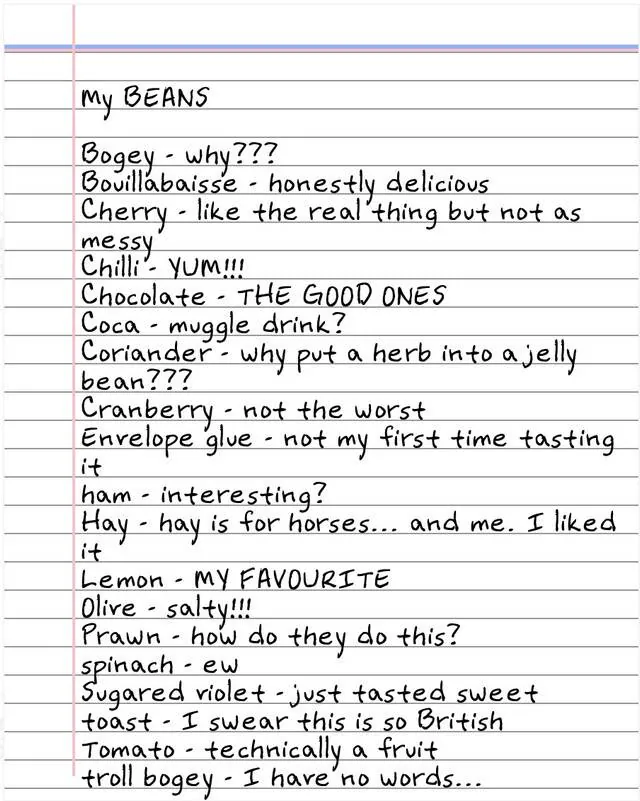 my BEANS
Bogey - why???
Bouillabaisse - honestly delicious
Cherry - like the real thing but not as
messy
Chilli - YUM!!!
Chocolate - THE GOOD ONES
Coca - muggle drink?
Coriander - why put a herb into a jelly
bean???
Cranberry - not the worst
Envelope glue - not my first time tasting
it
ham - interesting?
Hay - hay is for horses... and me. I liked
it
Lemon - MY FAVOURITE
Olive - salty!!!
Prawn - how do they do this?
spinach - ew
Sugared violet - just tasted sweet
toast - I swear this is so British
Tomato - technically a fruit
troll bogey - I have no words...